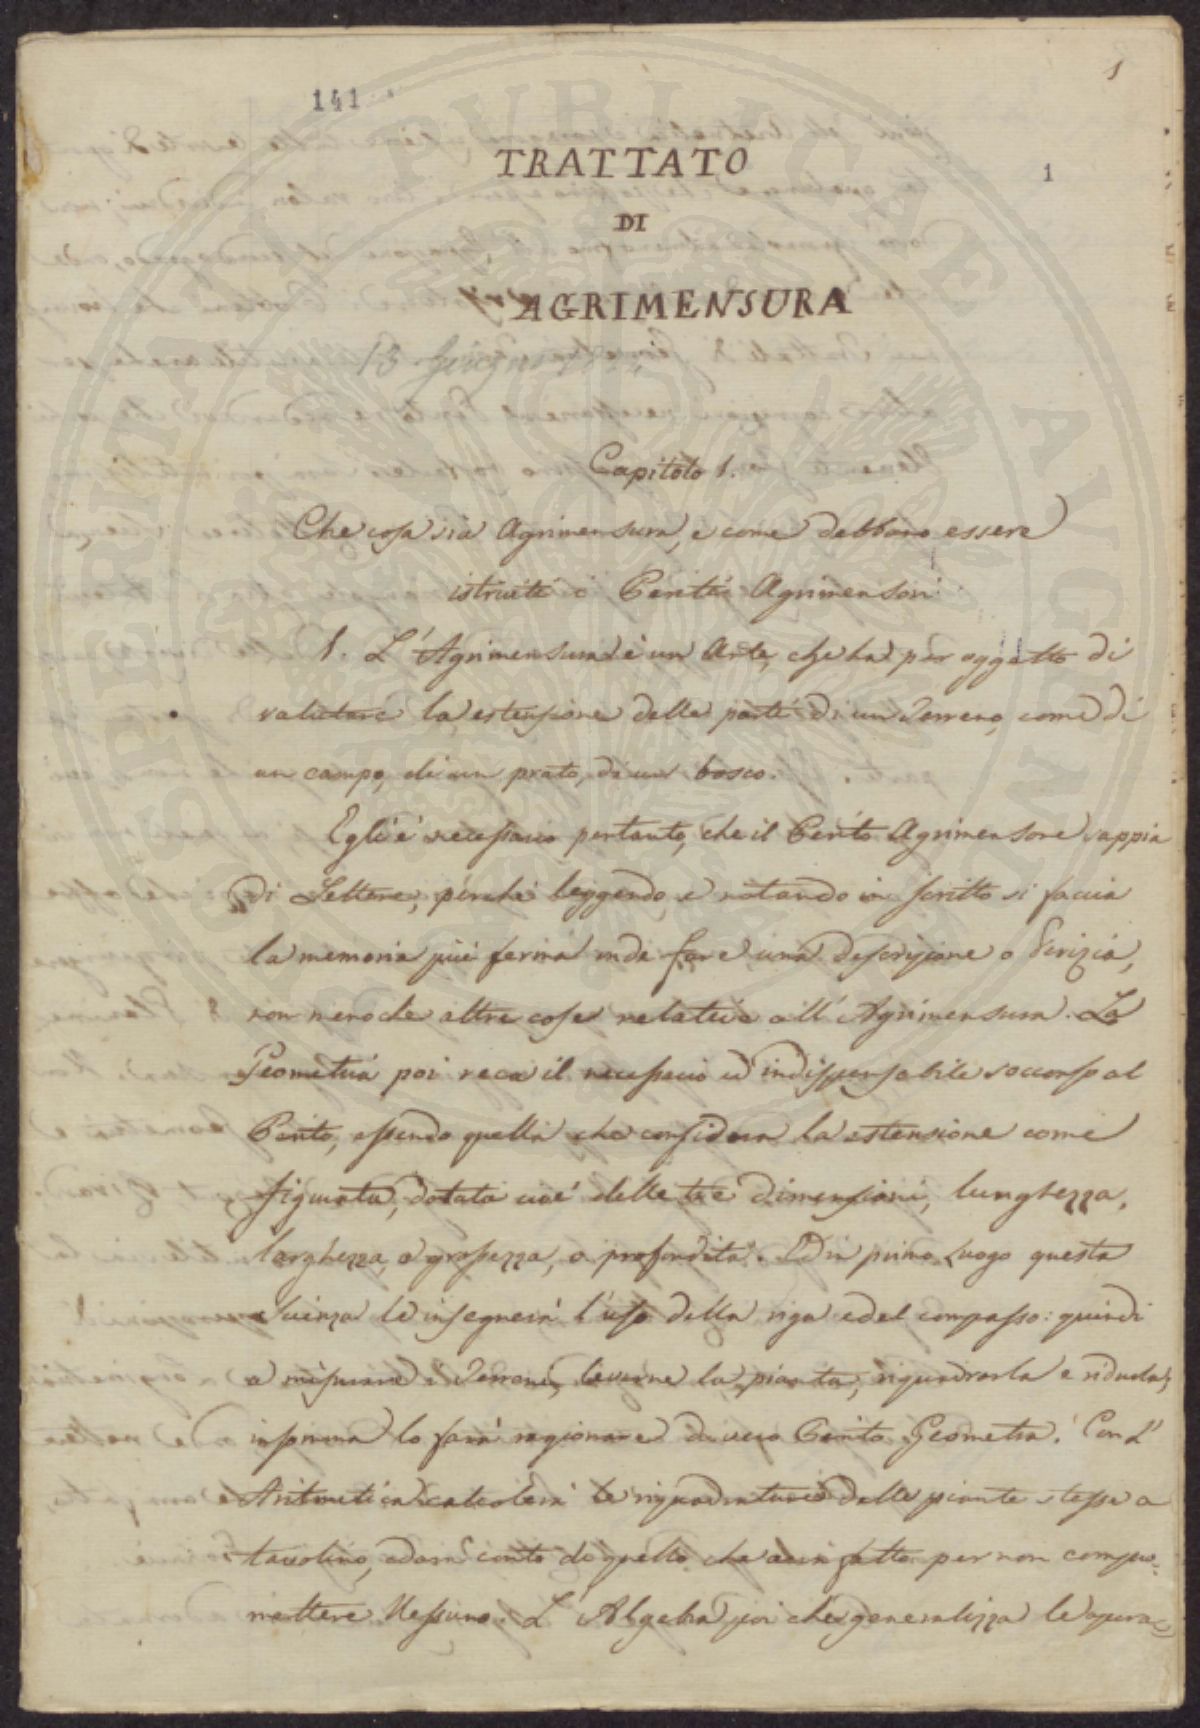 1
141
TRATTATO
1
DI
AGRIMENSURA
13 Giugno
Capitolo 1.
Che cosa sia Agrimensura, e come debbano essere
istruiti i Periti Agrimensori
1. L'Agrimensura è un Arte, che ha per oggetto di
valutare la estensione delle parti di un Terreno, come di
un campo, di un prato, di un bosco.
Egli è necessario pertanto, che il Perito Agrimensore sappia
di Lettere, perchè leggendo, e notando in scritto si faccia
la memoria più ferma onde fare una descrizione o Perizia,
non meno che altre cose relative all'Agrimensura. La
Geometria poi reca il necessario ed indispensabile soccorso al
Perito, essendo quella che considera la estensione come
figurata, dotata cioè delle tre dimensioni, lunghezza,
larghezza, e grossezza, o profondità. Ed in primo luogo questa
scienza le insegnerà l'uso della riga e del compasso: quindi
a misurare i Terreni, levarne la pianta, riquadrarla e ridurla;
insomma lo farà ragionare da vero Perito Geometra. Con L'
Aritmetica calcolerà le riquadrature delle piante stesse a
tavolino, e darà conto di quello che avrà fatto per non compro-
mettere Nessuno. L'Algebra poi che generalizza le opera-
SOSPERITATI PUBLICAE AVGENDAE